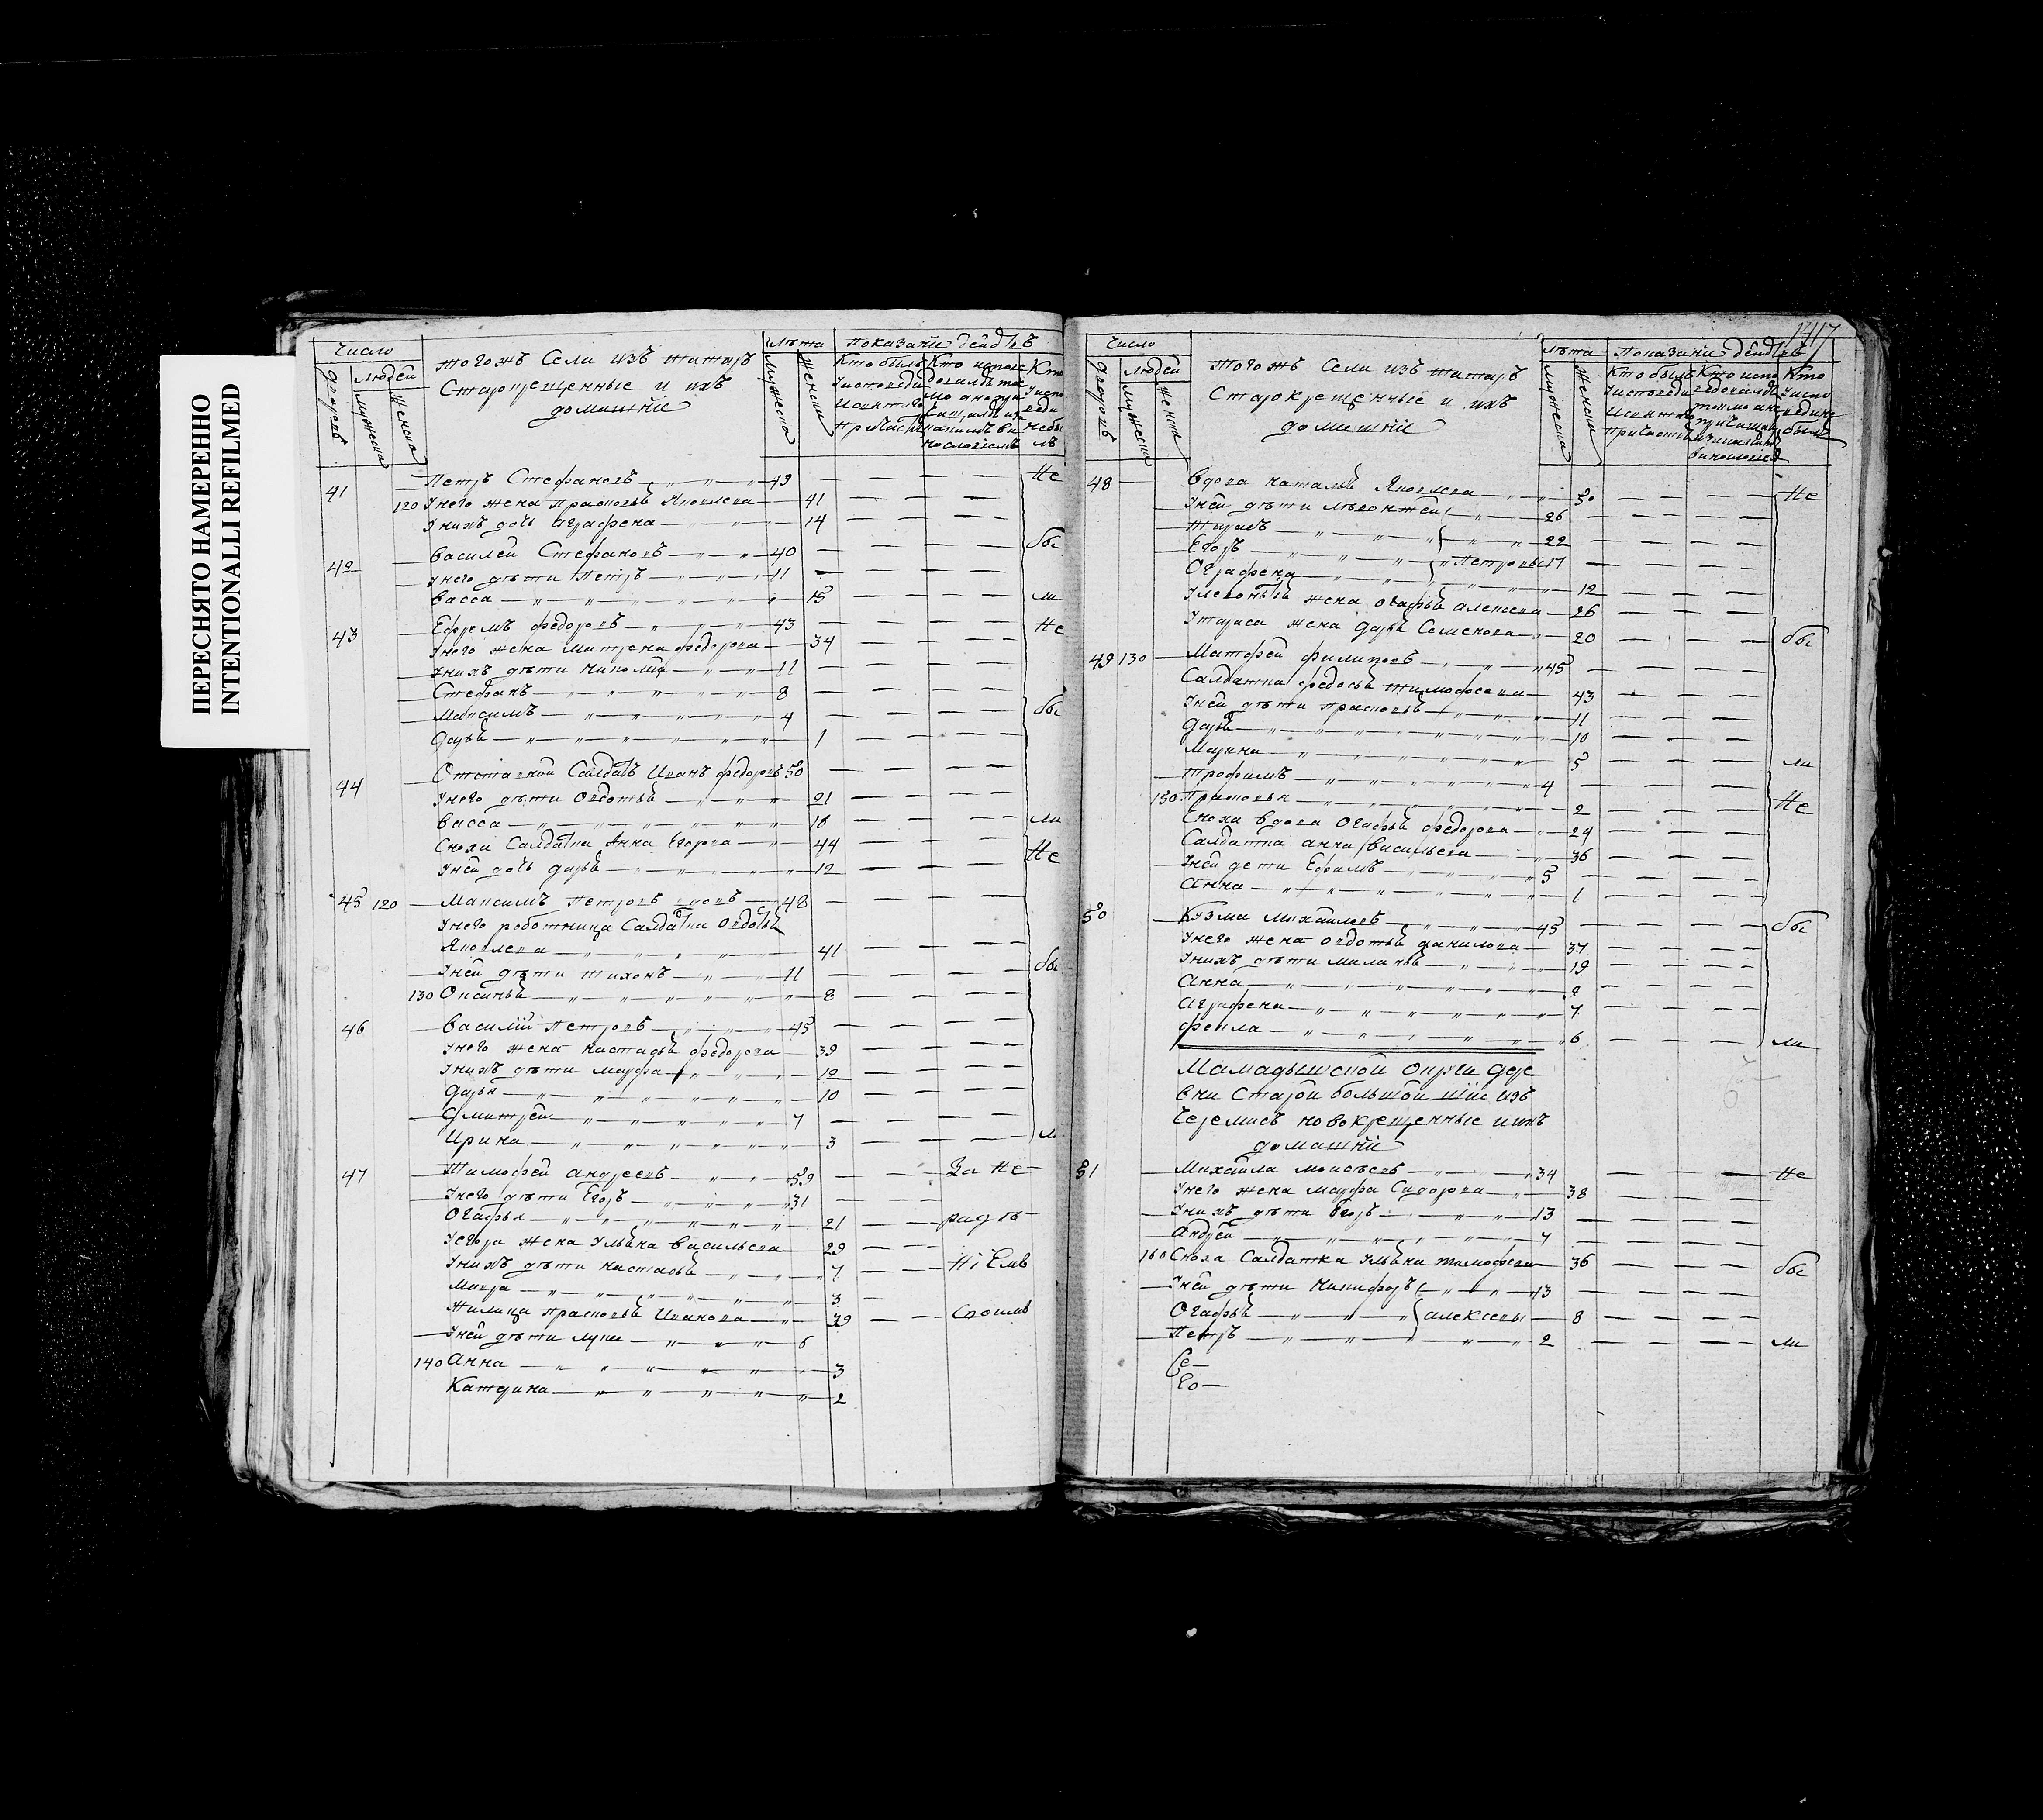 ПЕРЕСНЯТО НАМЕРЕННО
INTENTIONALLI REFILMED
Число
людей
дворовъ
мужеска
женска
тогожъ Села изъ татаръ
Старокрещенные и ихъ
домашнїе
лѣта
мужеска
женски
Показанїе
Кто былъ
Кто испов
41 Петръ Стефановъ 49 Не
120 У него жена Прасковья Яковлева 41
У нихъ дочь Аграфена 14
42 Василей Стефановъ 40 бы
У него дѣти Петръ 11
Васса 15 ли
43 Ефремъ Федоровъ 43 Не
У него жена Матрена Федорова 34
У нихъ дѣти Николай 11
Стефанъ 8
Максимъ 4 бы
Дарья 1
44 Отставной Салдатъ Иванъ Федоровъ 50
У него дѣти Овдотья 21
Васса 18 ли
Сноха Салдатка Анна Егорова 44 Не
У ней дочь Дарья 12
45 120 Максимъ Петровъ вдовъ 48
У него роботница Салдатка Овдотья
Яковлева 41
У ней дѣти Тихонъ 11 бы
130 Оксинья 8
46 Василїй Петровъ 45
У него жена Настасья Федорова 39
У нихъ дѣти Марфа 12
Дарья 10
Дмитрей 7
Ирина 3 ли
47 Тимофей Андреевъ 59 За не
У него дѣти Егоръ 31
Огафья 21 раде
У Егора жена Ульяна Васильева 29
У нихъ дѣти Настасья 7
Марья 3
Жилица Прасковья Иванова 39
У ней дѣти Лука 6
140 Анна 3
Катерина 2
1417
Число
людей
дворовъ
мужеска
женска
тогожъ Села изъ татаръ
Старокрещенные и ихъ
домашнїе
лѣта
мужеска
женски
Показанїе
Кто былъ
Кто испо
Кто
48 Вдова Наталья Яковлева 50 Не
У ней дѣти Леонтей 26
Тарасъ 22
Егоръ Петровы 17
Ографена 12
У Леонтья жена Огафья Алексеева 26
У Тараса жена Дарья Семенова 20 бы
49 130 Матфей Филиповъ 45
Салдатка Федосья Тимофеева 43
У ней дѣти Прасковья 11
Дарья 10
Марина 5 ли
Трофимъ 4
150 Прасковья 2 Не
Сноха вдова Огафья Федорова 24
Салдатка Анна Васильева 36
У ней дети Ефимъ 5
Анна 1
50 Кузма Михайловъ 45 бы
У него жена Овдотья Данилова 37
У нихъ дѣти Маланья 19
Анна 9
Аграфена 7
Фекла 6 ли
Мамадышской Округи Дере
вни Старой большой Шїи изъ
Черемисъ новокрещенные и ихъ
домашнїе
51 Михайла Моисѣевъ 34 Не
У него жена Марфа Сидорова 38
У нихъ дѣти Егоръ 13
Андрей 4
160 Сноха Салдатка Ульяна Тимофеева 36 бы
У ней дѣти Никифоръ 13
Огафья Алексеевы 8
Петръ 2 ли